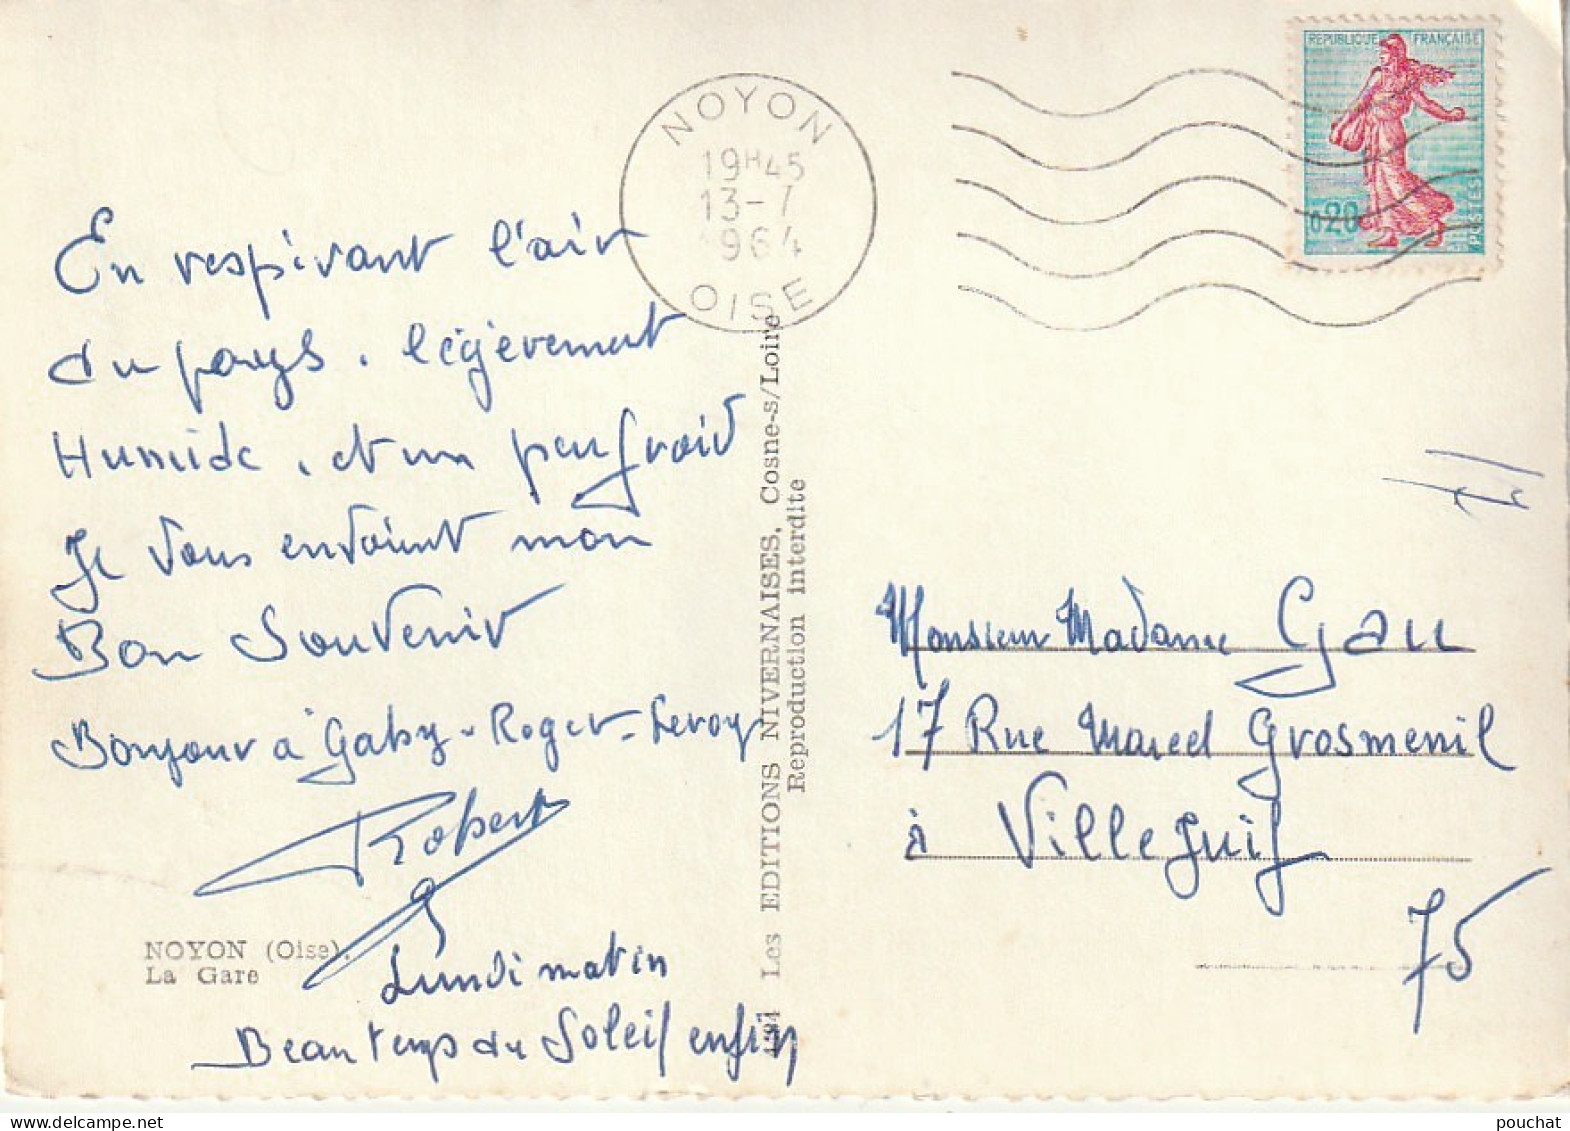 En respirant l'air
du pays. légèrement
Humide. et un peu froid
Je vous envoient mon
Bon Souvenir
Bonjour à Gaby - Roger - Leroy
Robert
Lundi matin
Beau temps du Soleil enfin
NOYON (Oise).
La Gare
Les EDITIONS NIVERNAISES, Cosne-s/Loire
Reproduction interdite
NOYON
19H45
13-7
1964
OISE
REPUBLIQUE FRANÇAISE
0,20
POSTES
Monsieur Madame Gau
17 Rue Marcel Grosmenil
à Villejuif
75
pouchat